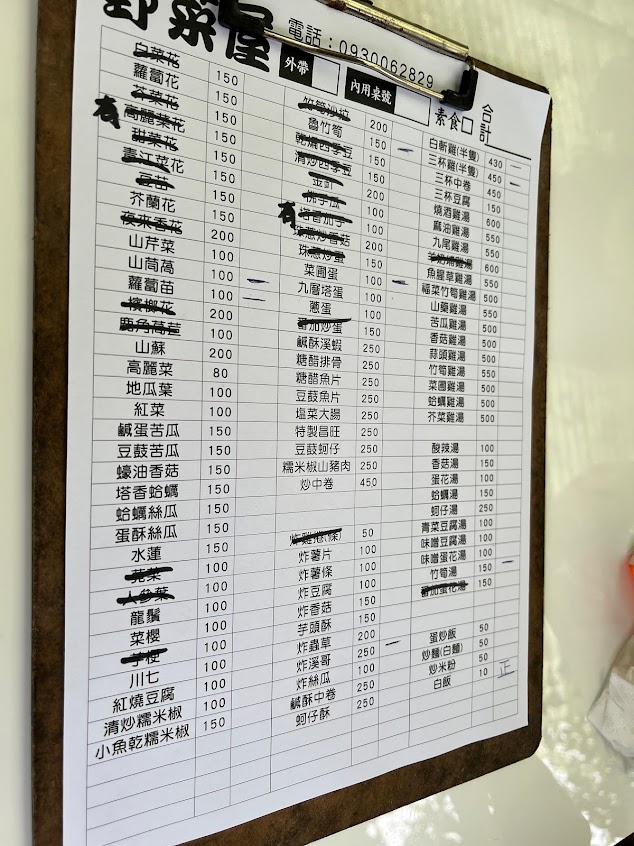 野菜屋
電話：0930062829
外帶
內用桌號
素食□
合計
白菜花 150
蘿蔔花 150
芥菜花 150
有 高麗菜花 150
甜菜花 150
青江菜花 150
豆苗 150
芥蘭花 150
夜來香花 200
山芹菜 150
山茼蒿 150
蘿蔔苗 100
檳榔花 200
鹿角萵苣 100
山蘇 200
高麗菜 80
地瓜葉 100
紅菜 100
鹹蛋苦瓜 150
豆豉苦瓜 150
蠔油香菇 150
塔香蛤蠣 150
蛤蠣絲瓜 150
蛋酥絲瓜 150
水蓮 150
莧菜 100
人參葉 100
龍鬚 100
菜櫻 100
芋梗 100
川七 100
紅燒豆腐 100
清炒糯米椒 100
小魚乾糯米椒 150
竹筍沙拉 200
魯竹筍 150
乾煸四季豆 150
清炒四季豆 150
金針 200
佛手瓜 100
有 番茄子 100
珠蔥炒香菇 200
珠蔥炒蛋 150
菜圃蛋 100
九層塔蛋 100
蔥蛋 100
番茄炒蛋 150
鹹酥溪蝦 250
糖醋排骨 250
糖醋魚片 250
豆豉魚片 250
塩菜大腸 250
特製昌旺 250
豆豉蚵仔 250
糯米椒山豬肉 250
炒中卷 450
炸雞捲(條) 50
炸薯片 100
炸薯條 100
炸豆腐 100
炸香菇 150
芋頭酥 150
炸蟲草 200
炸溪哥 250
炸絲瓜 100
鹹酥中卷 250
蚵仔酥 250
白斬雞(半隻) 430
三杯雞(半隻) 450
三杯中卷 450
三杯豆腐 150
燒酒雞湯 600
麻油雞湯 550
九尾雞湯 550
羊奶埔雞湯 600
魚腥草雞湯 550
福菜竹筍雞湯 500
山藥雞湯 550
苦瓜雞湯 500
香菇雞湯 550
蒜頭雞湯 500
竹筍雞湯 500
菜圃雞湯 500
蛤蠣雞湯 500
芥菜雞湯 500
酸辣湯 100
香菇湯 150
蛋花湯 100
蛤蠣湯 150
蚵仔湯 250
青菜豆腐湯 100
味噌豆腐湯 100
味噌蛋花湯 100
竹筍湯 150
番茄蛋花湯 150
蛋炒飯 50
炒麵(白麵) 50
炒米粉 50
白飯 10 正